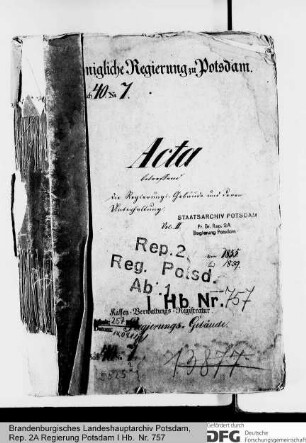 nigliche Regierung zu Potsdam.
40. No 7.
Acta
betreffend
die Regierungs-Gebäude und deren
Unterhaltung.
STAATSARCHIV POTSDAM
Vol. II.
Pr. Br. Rep. 2A
Regierung Potsdam
Rep. 2
von 1855
bis 1859.
Reg. Potsd.
Abt. 1
I Hb Nr. 757
Kassen-Verwaltungs-Registratur
257
Regierungs-Gebäude
Brandenburgisches Landeshauptarchiv Potsdam,
Rep. 2A Regierung Potsdam I Hb. Nr. 757
Gefördert durch
DFG Deutsche
Forschungsgemeinschaft